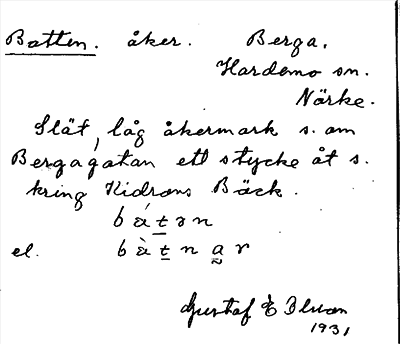 Batten. åker. Berga,
Hardemo sn.
Närke.
Slät, låg åkermark s. om
Bergagatan ett stycke åt s.
kring Kidrons Bäck.
bátən
el. bàtnar
Gustaf E
1931